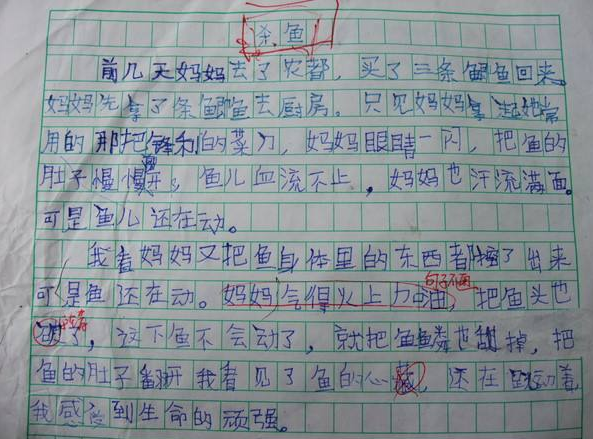 杀鱼
前几天妈妈去了农都，买了三条鲫鱼回来。
妈妈先拿了条鲫鱼去厨房。只见妈妈拿起她常
用的那把锋利的菜刀，妈妈眼睛一闪，把鱼的
肚子慢慢开。鱼儿血流不止，妈妈也汗流满面。
可是鱼儿还在动。
我看妈妈又把鱼身体里的东西都掏了出来
可是鱼还在动。妈妈气得火上加油，把鱼头也
了，这下鱼不会动了，就把鱼鳞也刮掉，把
鱼的肚子翻开我看见了鱼的心臧，还在跳动着
我感受到生命的顽强。